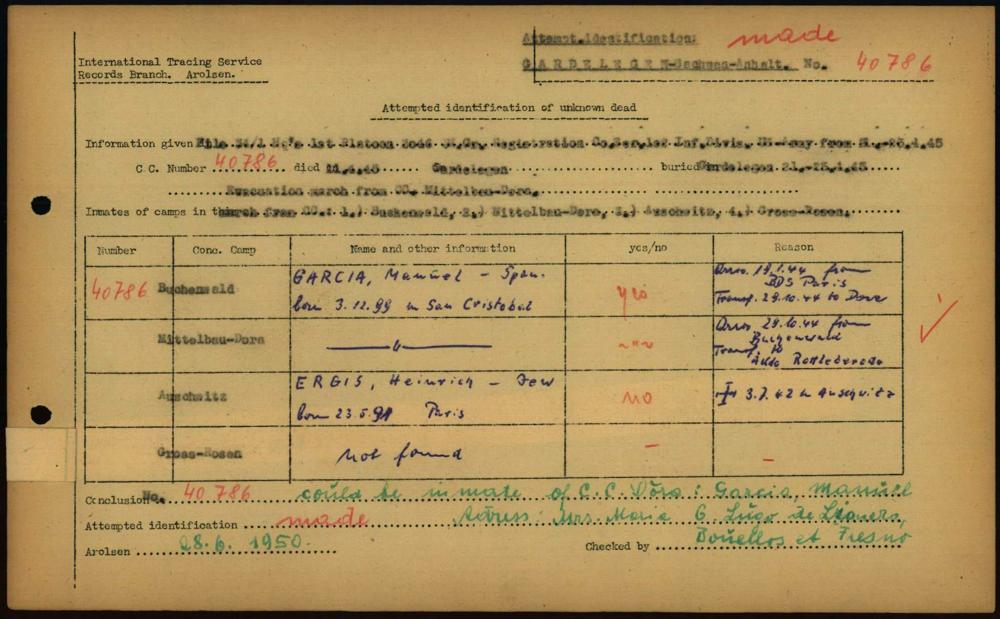 Attempt.identification: made
International Tracing Service
Records Branch. Arolsen.
GARDELEGEN-Sachsen-Anhalt. No. 40786
Attempted identification of unknown dead
Information given File 54/1 Hq's 1st Platoon 3046 Registration Co. Inf.Divis. from 21.-25.4.45
C.C. Number 40786 died 4.45 Gardelegen buried Gardelegen 21.-25.4.45
Evacuation march from CC. Mittelbau-Dora.
Inmates of camps in the march from CC.: 1.) Buchenwald, 2.) Mittelbau-Dora, 3.) Auschwitz, 4.) Gross-Rosen.
Number Conc. Camp Name and other information yes/no Reason
40786 Buchenwald GARCIA, Manuel - Span. born 3.12.99 in San Cristobal yes Arrv. 19.1.44 from BDS Paris Transf. 29.10.44 to Dora
Mittelbau-Dora — " — - " - Arrv. 29.10.44 from Buchenwald Transf. to Rottleberode
Auschwitz ERGIS, Heinrich - Jew born 23.5.91 Paris no 3.7.42 in Auschwitz
Gross-Rosen not found - -
Conclusion No. 40786 could be inmate of C.C. Dora: Garcia, Manuel
Attempted identification made Adress: Mrs. Maria G. Lugo de
Arolsen 28.6. 1950. Checked by et Fresno